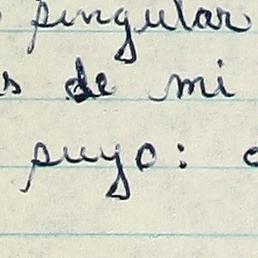 singular
s de mi
suyo: